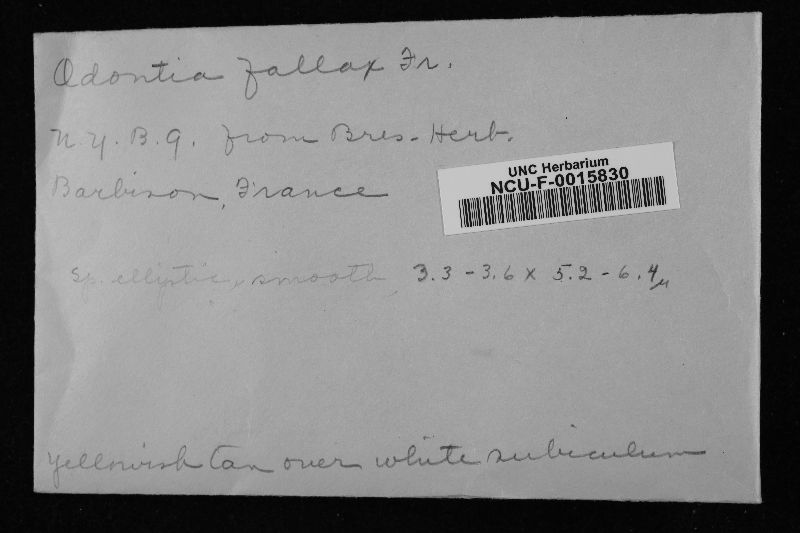 Odontia fallax Fr.
N.Y.B.G. from Bres. Herb.
Barbison, France
UNC Herbarium
NCU-F-0015830
Sp. elliptic, smooth, 3.3 - 3.6 x 5.2 - 6.4 µ
Yellowish tan over white subiculum